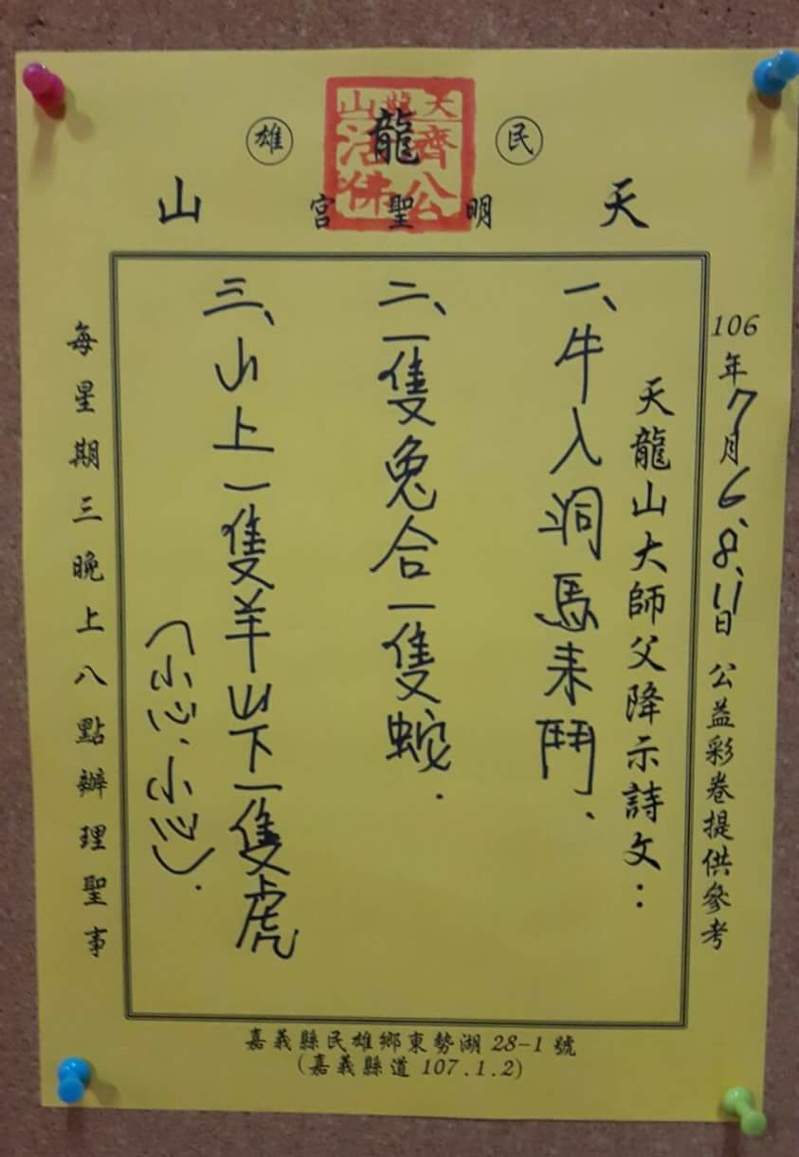 民 龍 雄
天 明聖宮 山
天龍山
濟公
活佛
106年7月6、8、11日 公益彩卷提供參考
天龍山大師父降示詩文：
一、牛入洞馬来鬥.
二、一隻兔合一隻蛇.
三、山上一隻羊山下一隻虎
(小心、小心).
每星期三晚上八點辦理聖事
嘉義縣民雄鄉東勢湖 28-1 號
(嘉義縣道 107.1.2)